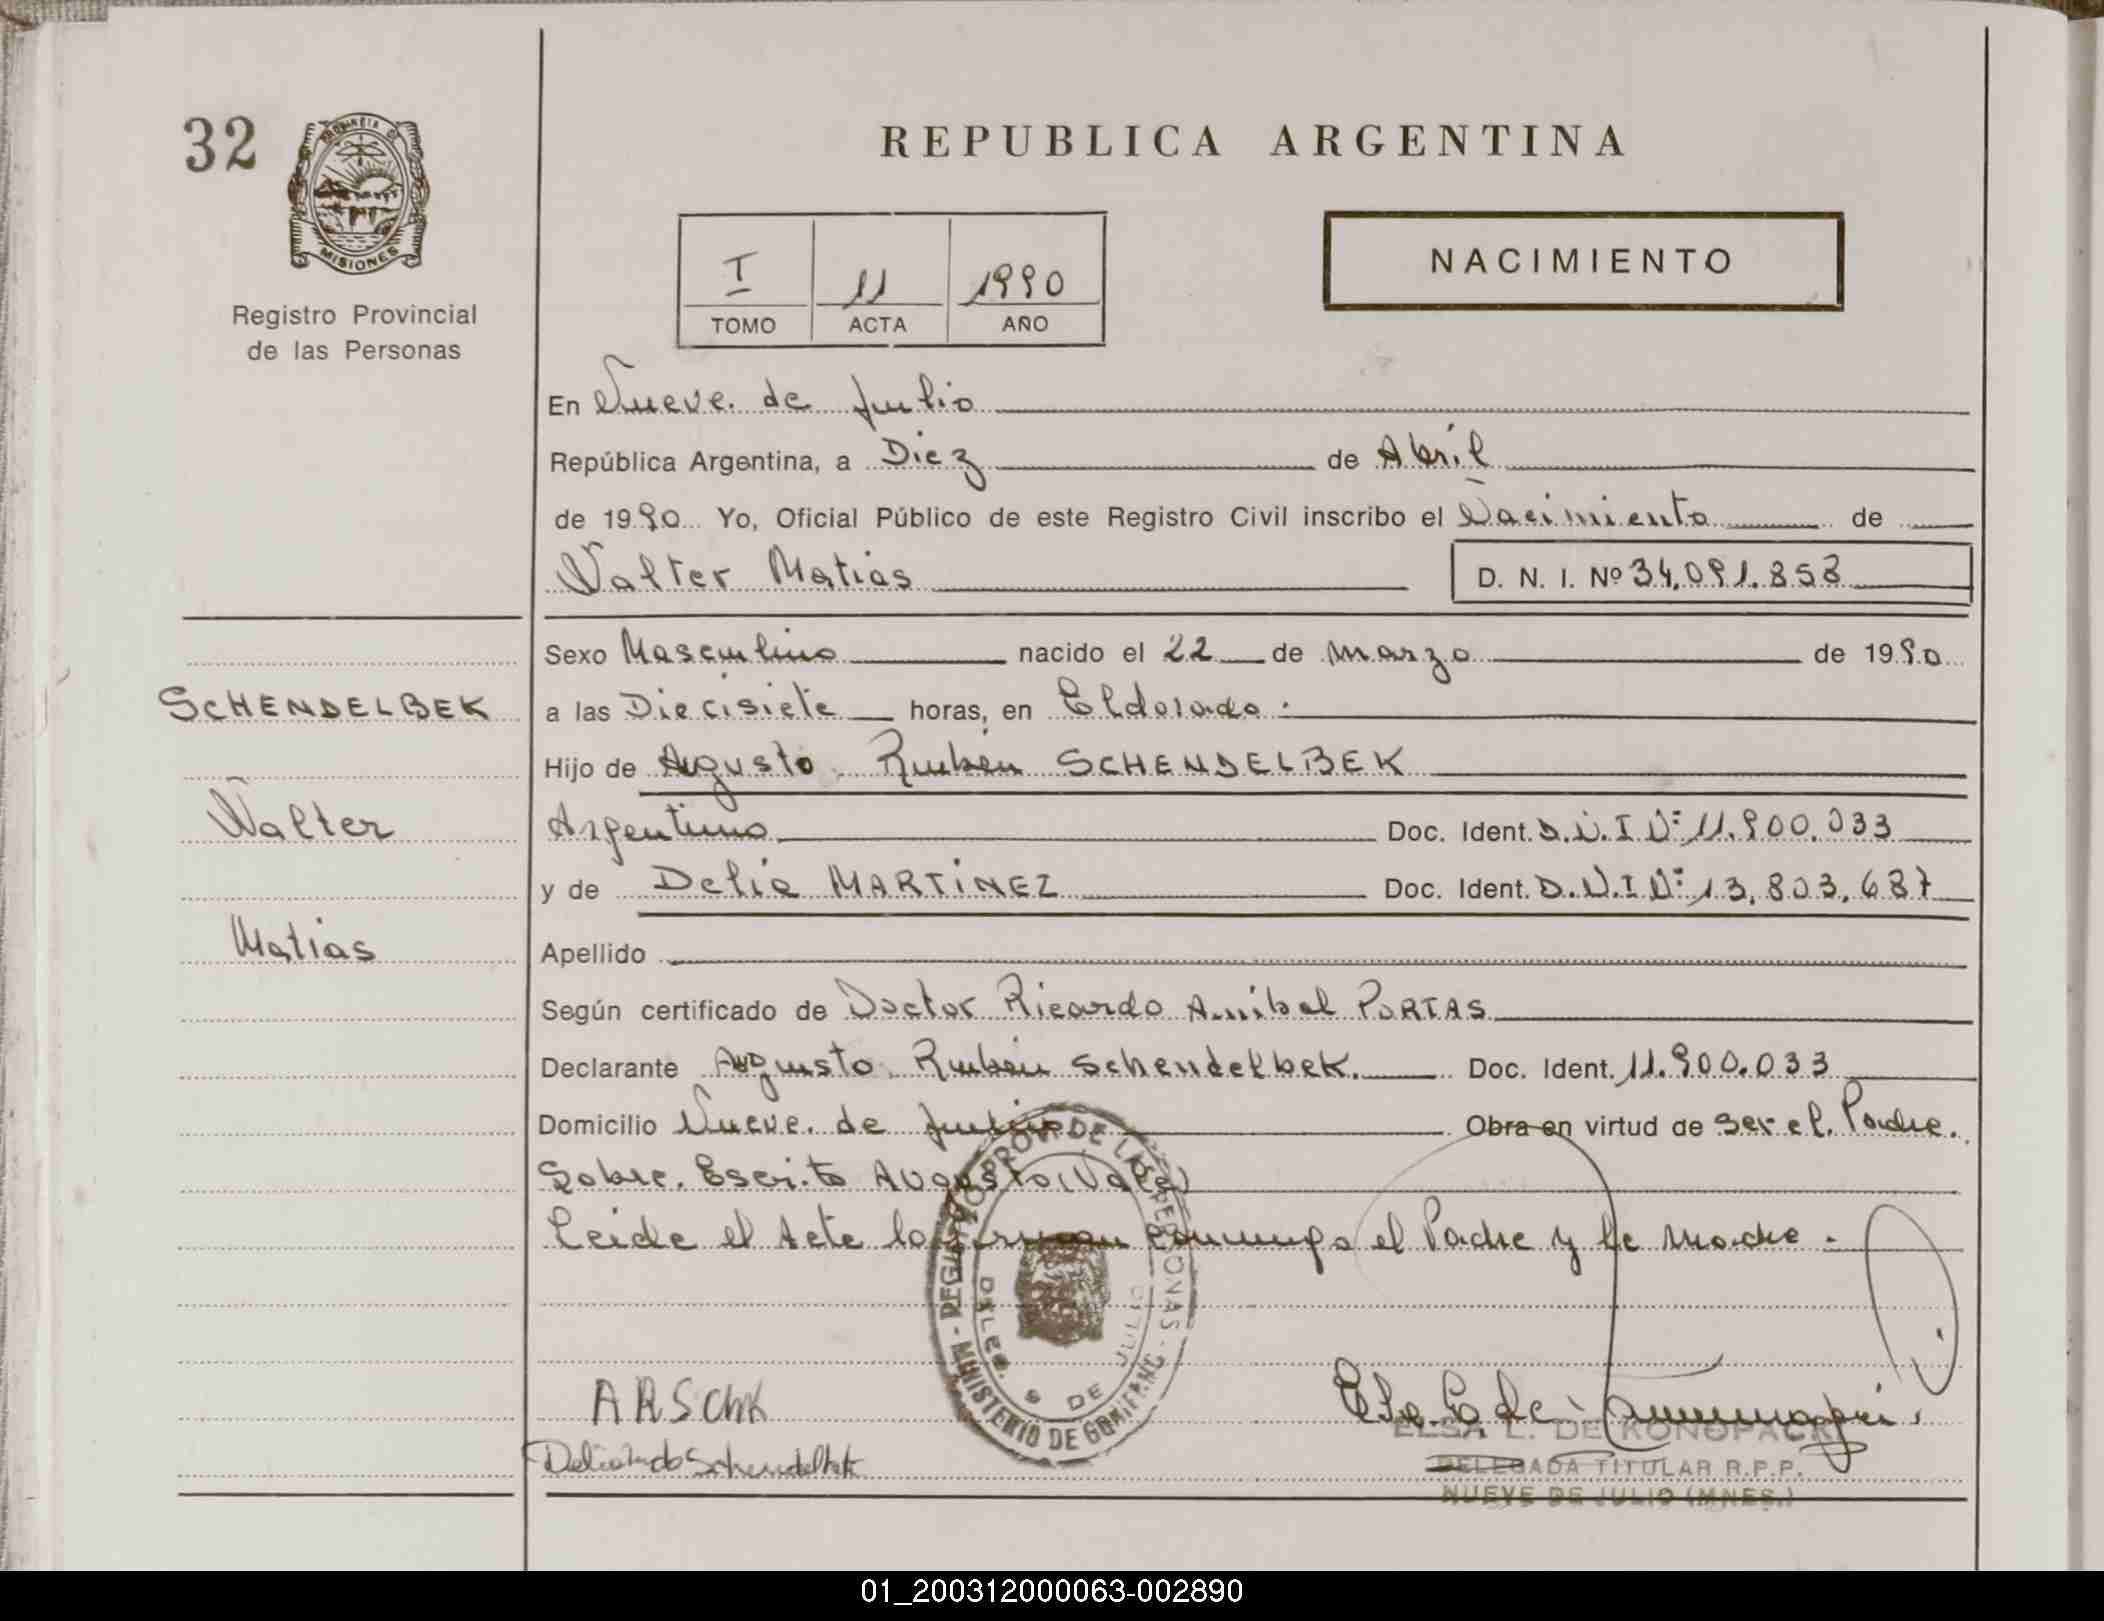 32
PROVINCIA DE
MISIONES
Registro Provincial
de las Personas
REPUBLICA ARGENTINA
I 11 1990
TOMO ACTA AÑO
NACIMIENTO
En Nueve de Julio
República Argentina, a Diez de Abril
de 1990 Yo, Oficial Público de este Registro Civil inscribo el Nacimiento de
Walter Matias D. N. I. Nº 34.091.858
Sexo Masculino nacido el 22 de Marzo de 1990
SCHENDELBEK a las Diecisiete horas, en Eldorado.
Hijo de Augusto Rubén SCHENDELBEK
Walter Argentino Doc. Ident. D.N.I Nº 11.900.033
y de Delia MARTINEZ Doc. Ident. D.N.I Nº 13.803.687
Matias Apellido
Según certificado de Doctor Ricardo Anibal PORTAS
Declarante Augusto Rubén Schendelbek. Doc. Ident. 11.900.033
Domicilio Nueve de Julio Obra en virtud de ser el Padre.
Sobre Escrito Augusto (Vale)
Leida el Acta la firman conmigo el Padre y la madre.
REGISTRO PROV. DE LAS PERSONAS - MINISTERIO DE GOB.
DELEG. 9 DE JULIO
ARSchk
Schendelbek
ELSA L. DE KONOPACKI
DELEGADA TITULAR R.P.P.
NUEVE DE JULIO (MNES.)
01_200312000063-002890